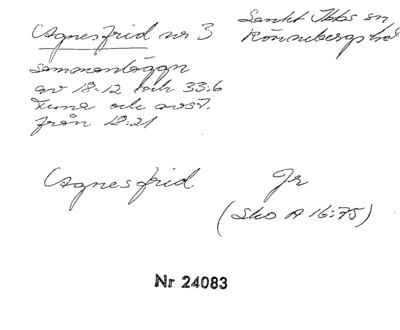 Agnesfrid nr 3
Sankt Ibbs sn
Rönnebergs hd
sammanläggn
av 18:12 och 33:6
Tuna och avst.
från 18:21
Agnesfrid Jr
(Sko A 16:75)
Nr 24083